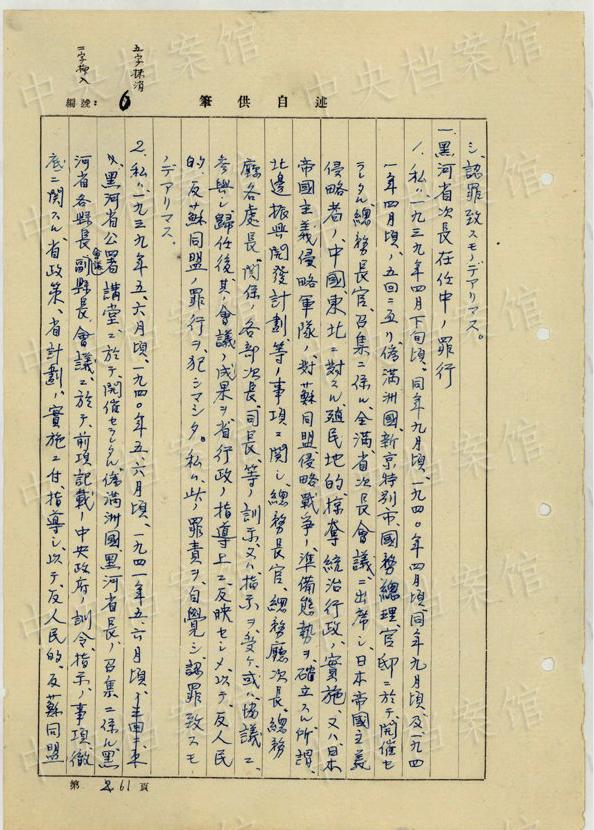 五字抹消
二字挿入
編號：6
筆供自述
シ認罪致スモノデアリマス。
一、黑河省次長在任中ノ罪行
1、私ハ一九三九年四月下旬頃、同年九月頃、一九四〇年四月頃、同年九月頃及一九四
一年四月頃、五回ニ亙リ偽滿洲國新京特別市國務總理官邸ニ於テ開催セ
ラレタル總務長官ノ召集ニ係ル全滿省次長會議ニ出席シ、日本帝國主義
侵略者ノ中國東北ニ對スル殖民地的掠奪統治行政ノ實施、又ハ日本
帝國主義侵略軍隊ノ對蘇同盟侵略戰爭ノ準備態勢ヲ確立スル所謂
北邊振興開發計劃等ノ事項ニ關シ總務長官、總務廳次長、總務
廳各處長、關係各部次長、司長等ノ訓示又ハ指示ヲ受ケ或ハ協議ニ
參與シ歸任後其ノ會議ノ成果ヲ省行政ノ指導上ニ反映セシメ以テ反人民
的、反蘇同盟ノ罪行ヲ犯シマシタ。私ハ此ノ罪責ヲ自覺シ認罪致スモ
ノデアリマス。
2、私ハ一九三九年五、六月頃、一九四〇年五、六月頃、一九四一年五、六月頃、
黑河省公署會議講堂ニ於テ開催セラレタル偽滿洲國黑河省長ノ召集ニ係ル黑
河省各縣長、副縣長會議ニ於テ前項記載ノ中央政府ノ訓令、指示ノ事項徹
底ニ關スル省政策、省計劃ノ實施ニ付指導シ以テ反人民的、反蘇同盟
第 261 頁
中央档案馆